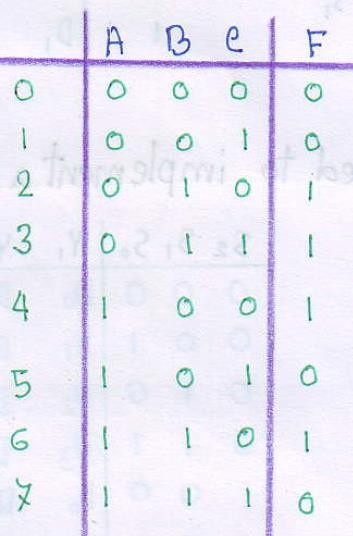 A B C F
0 0 0 0 0
1 0 0 1 0
2 0 1 0 1
3 0 1 1 1
4 1 0 0 1
5 1 0 1 0
6 1 1 0 1
7 1 1 1 0